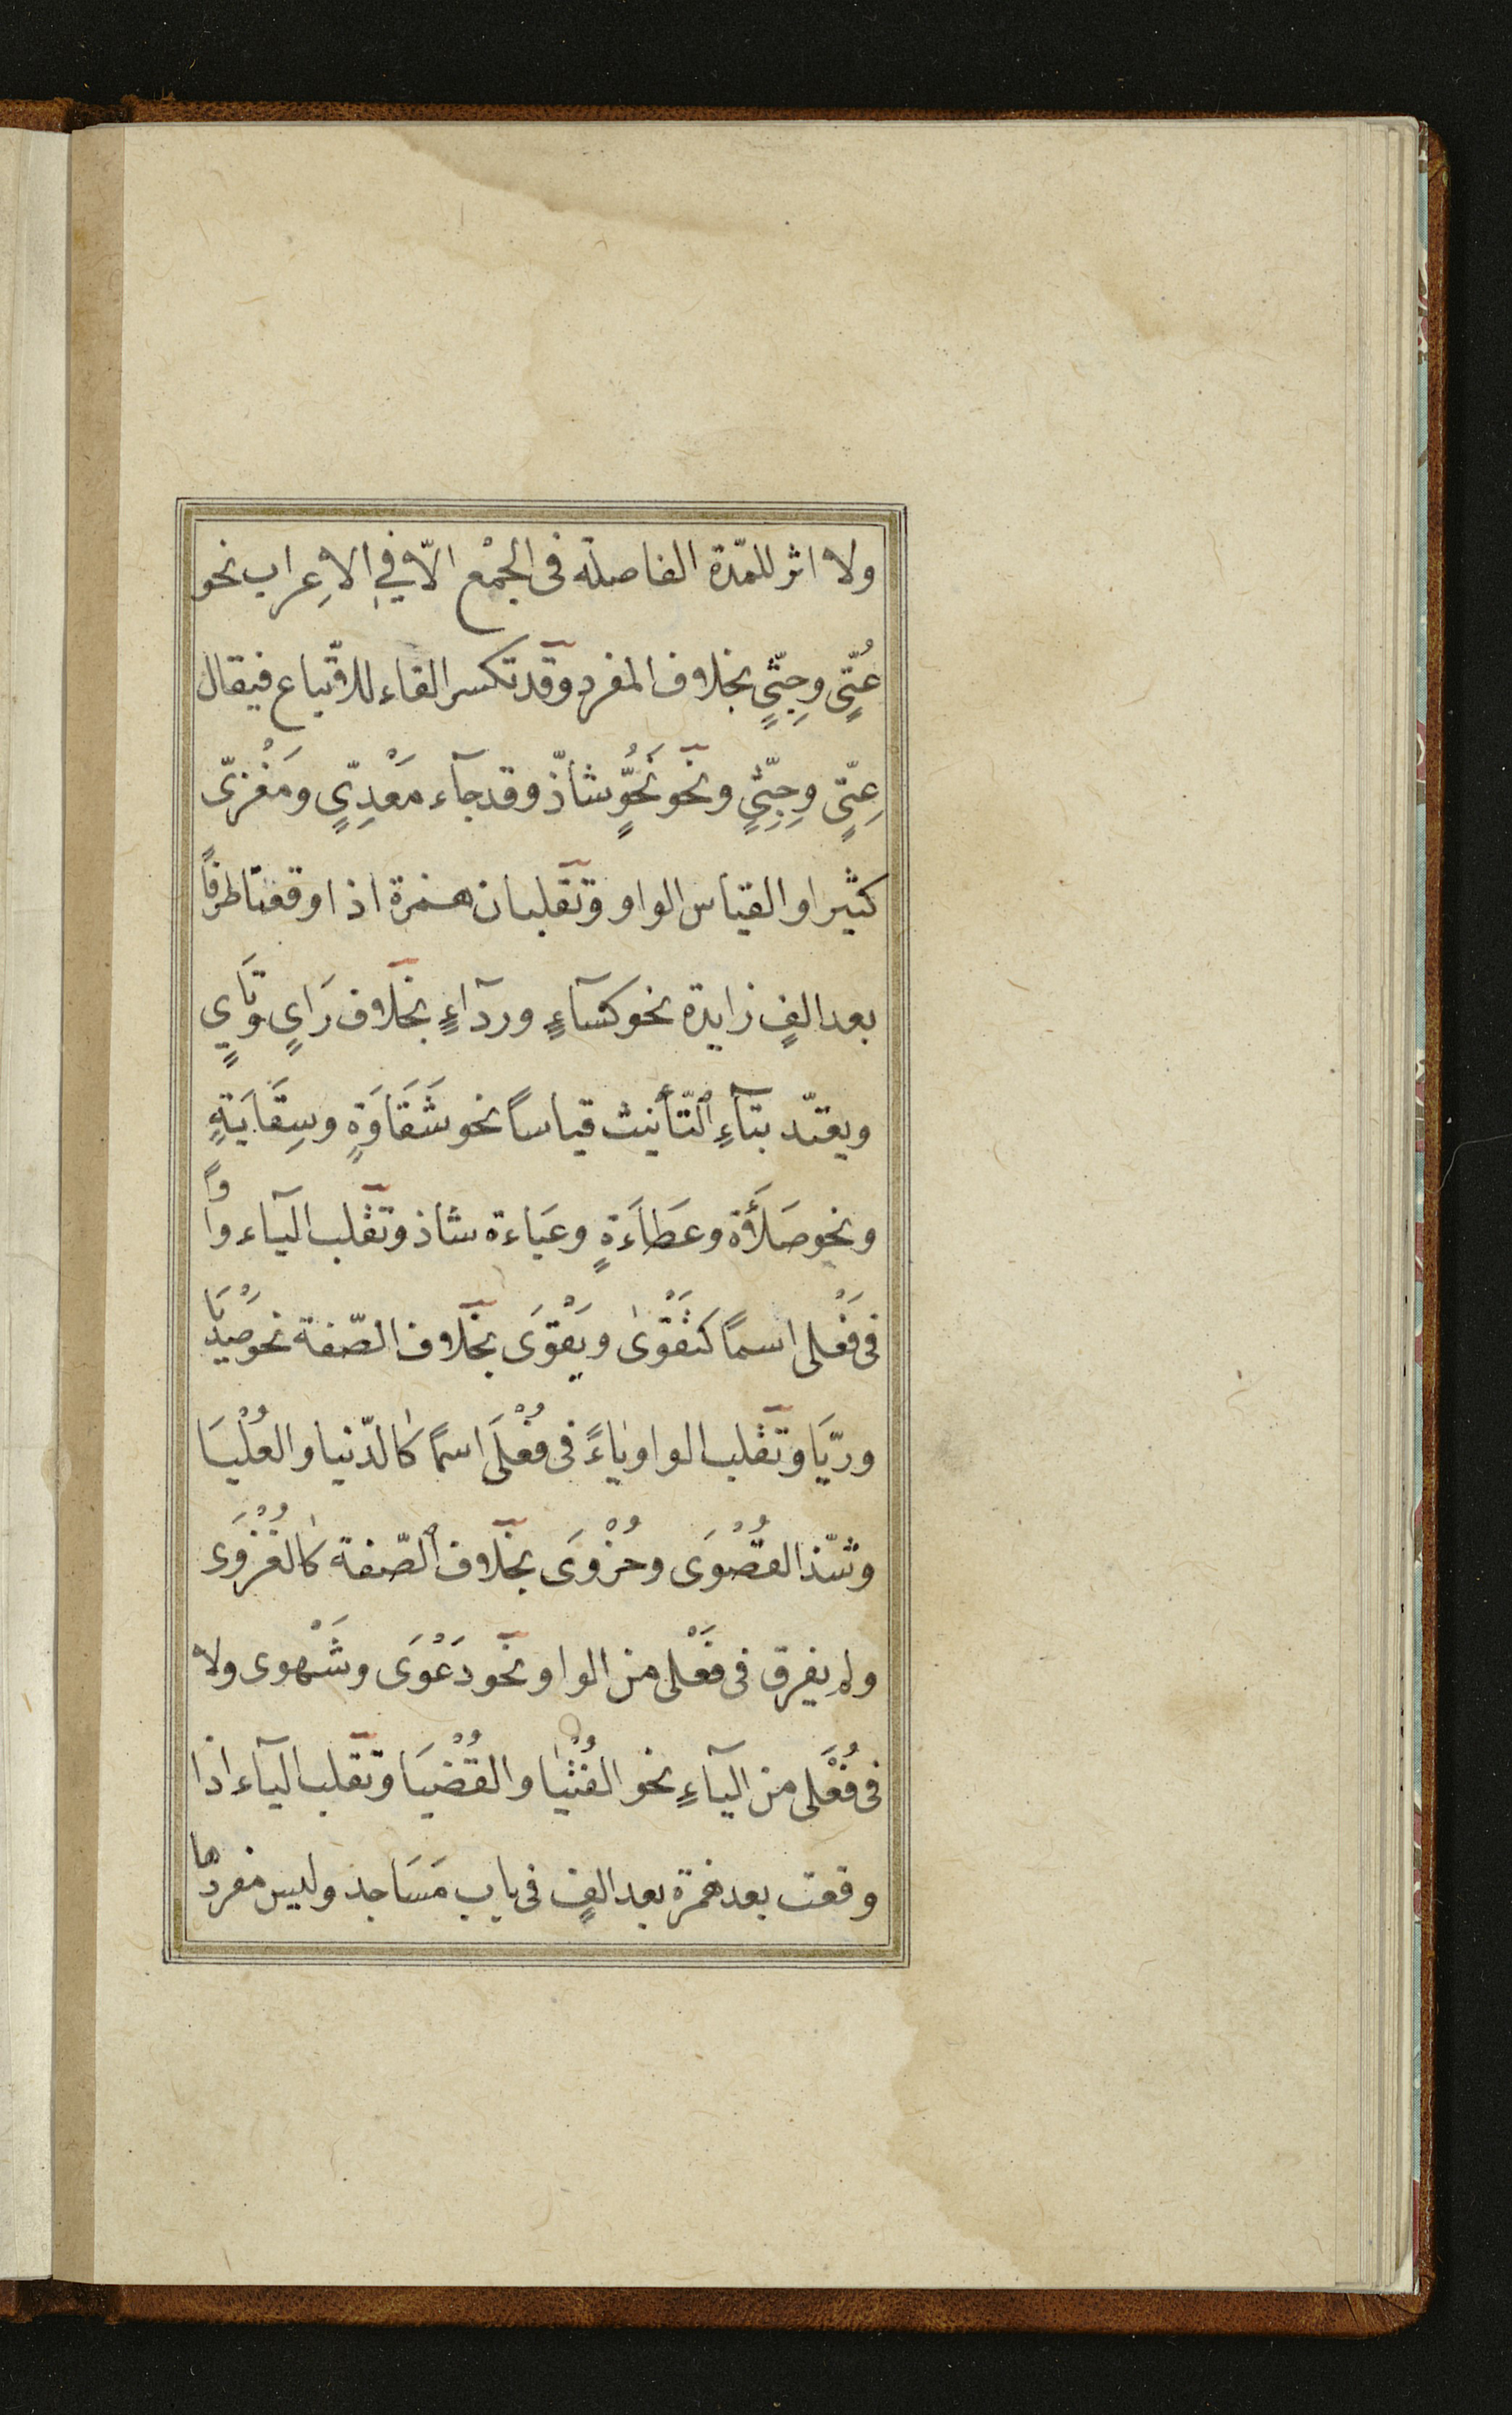 ولا اثر للمدّة الفاصلة فى الجمْع الّا فِي الاِعراب نحو
عُتّىٍ وجِثّىٍ بخلاف المفرد وقد تكسر الفاء للاتّباع فيقال
عِتّىٍ وجِثِّىٍ ونحو نُحُوٍّ شاذّ وقد جآء مَعْدِىّ ومَغْزىّ
كثيرا والقياس الواو وتقلبان همزة اذا وقعتا طرفًا
بعد الفٍ زايدة نحو كسآءٍ وردآءٍ بخلاف رَاىٍ وثَاىٍ
ويعتدّ بتآءِ التّأنيث قياسًا نحو شَقَاوَةٍ وسِقَايَةٍ
ونحو صَلَأَة وعَظَاءَةٍ وعَباءة شاذ وتقلب اليآء واوًا
فى فَعْلى اسمًا كَتَقْوَىٰ وبَقْوَى بخلاف الصّفة نحو صَدْيَا
وريَّا وتقلب الواو ياءً فى فُعْلَى اسمًا كالدّنيا والعُلْيَا
وشذّ القُصْوَى وحُزْوَى بخلاف الصّفة كالغُزْوَى
ولم يفرق فى فَعْلى من الواو نحو دَعْوَى وشَهْوى ولا
فى فُعْلى من اليآءِ نحو الفُتْيَا والقُضْيَا وتقلب اليآء اذا
وقعت بعد همزة بعد الفٍ فى باب مَسَاجد وليس مفردها